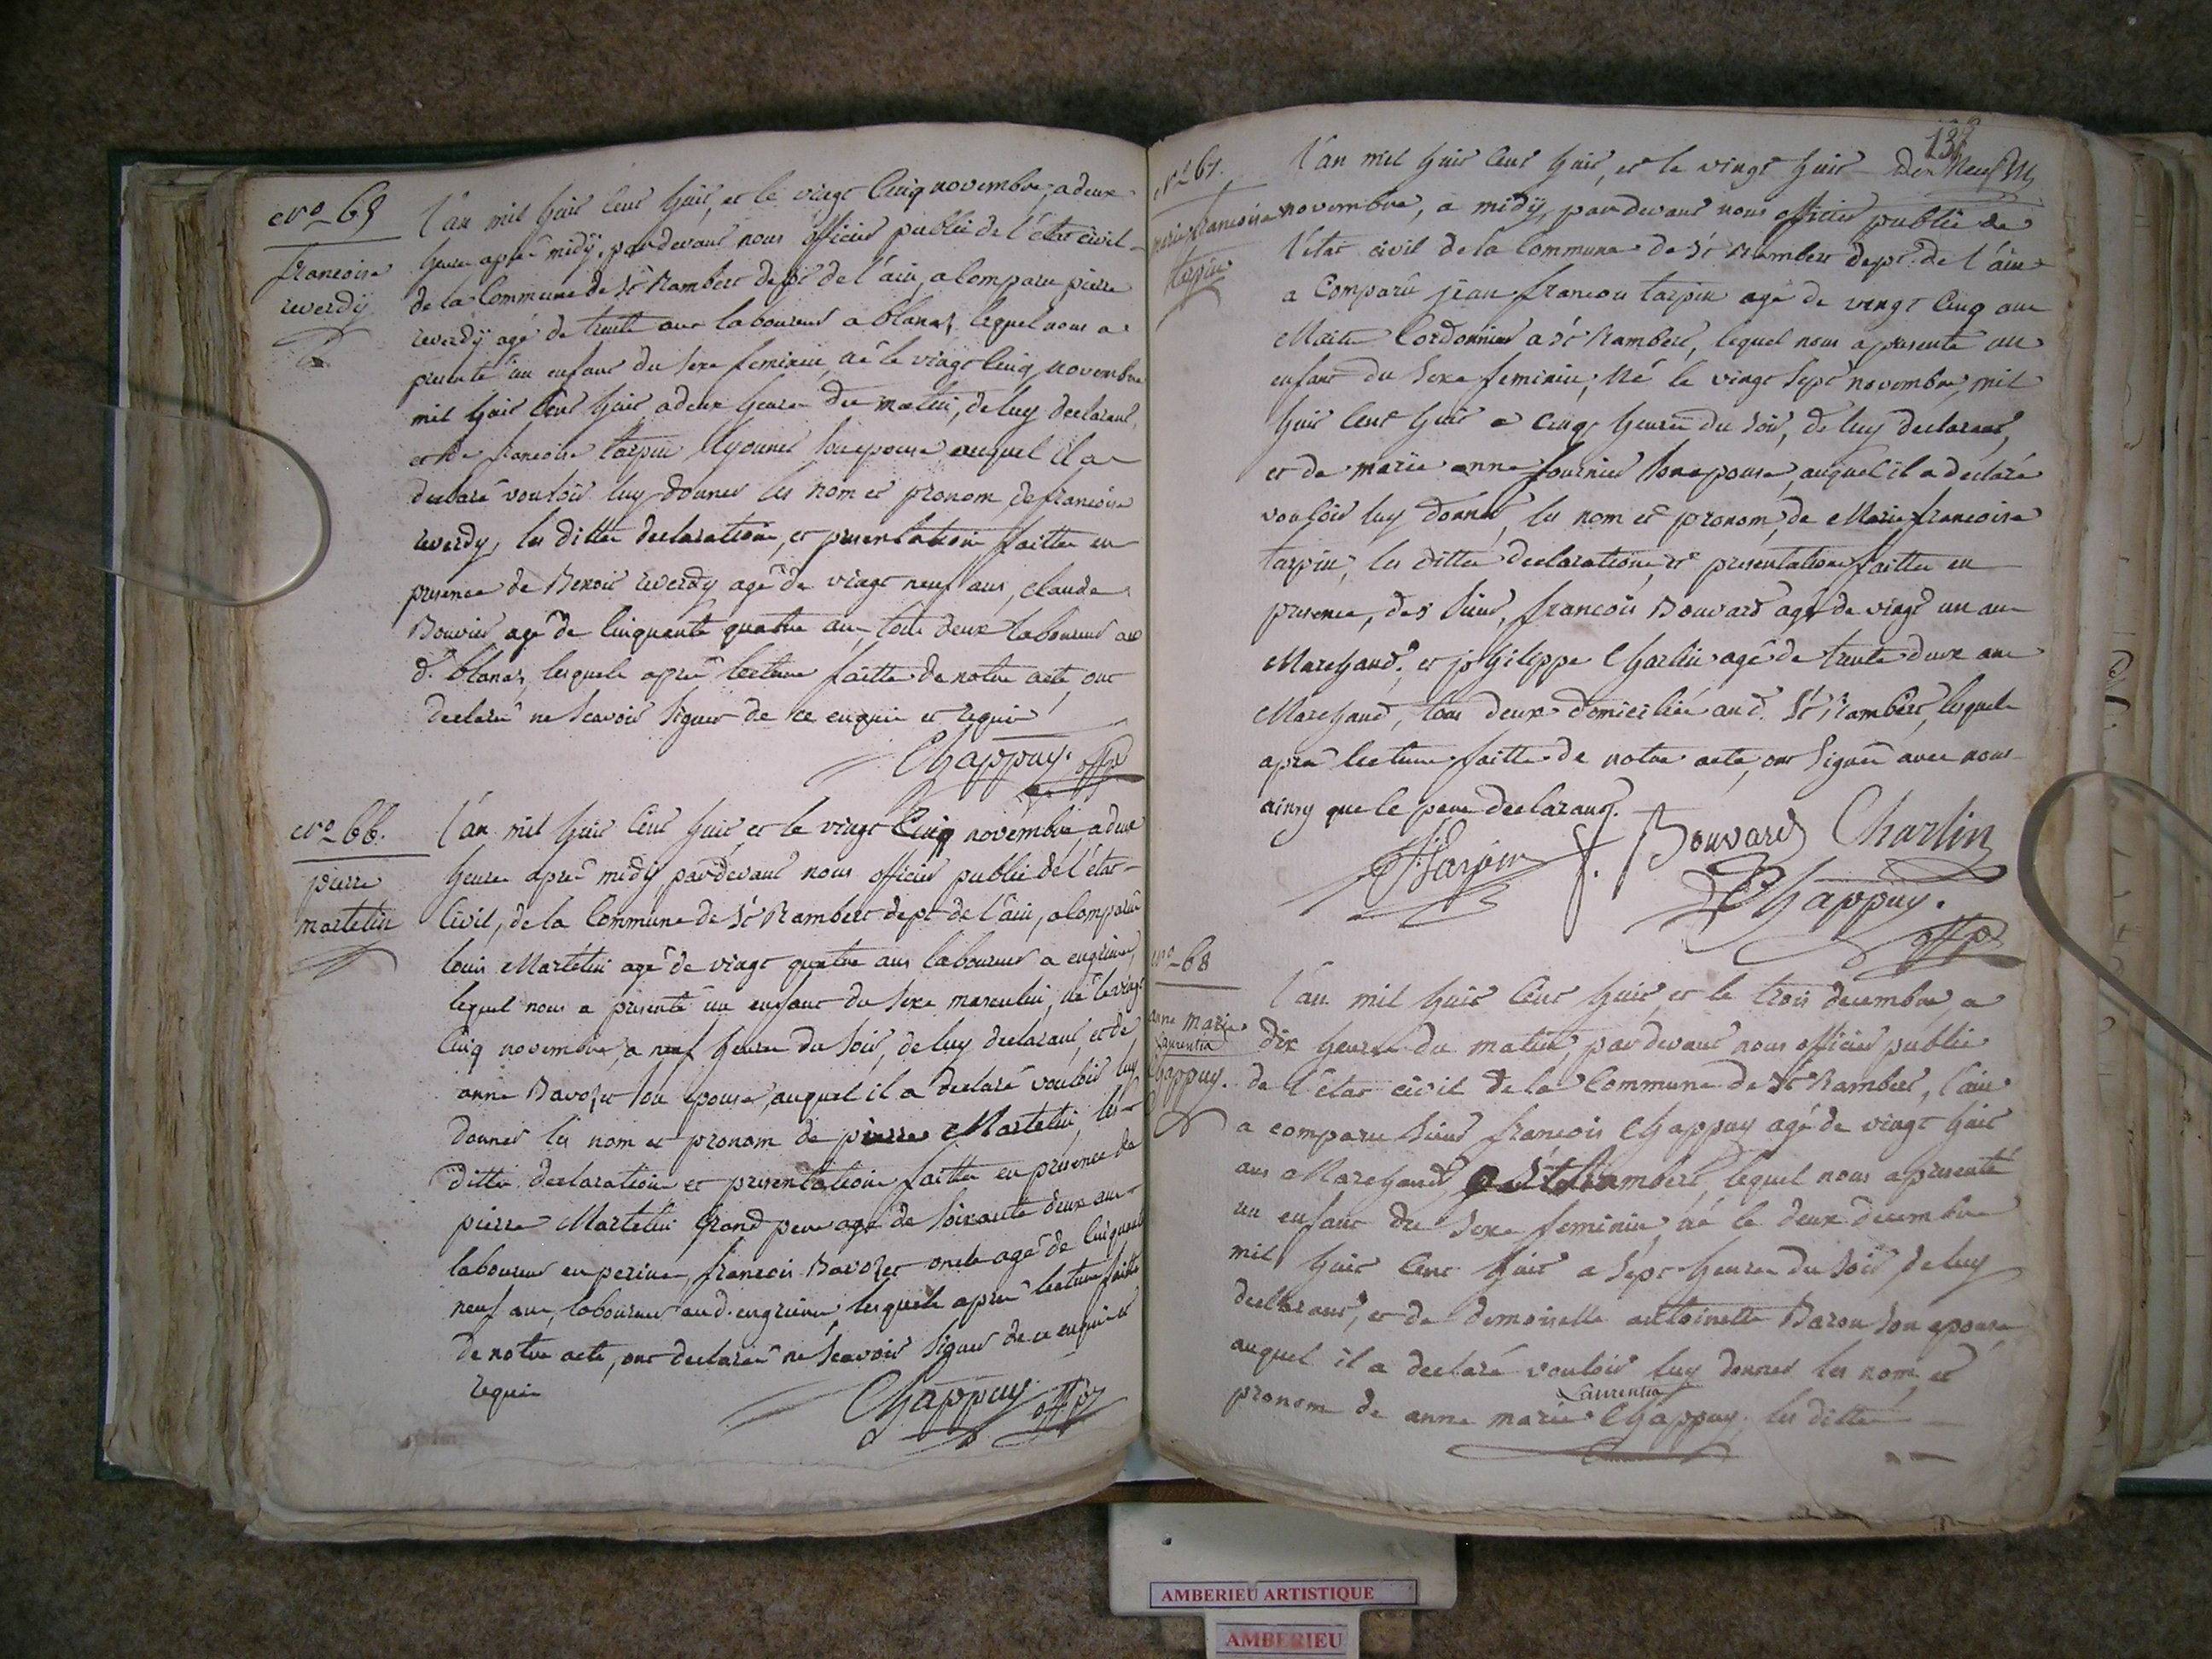 N.o 65
francoise
reverdÿ
L'an mil huit cent huit, et le vingt cinq novembre, a deux
heures après midÿ, pardevant nous officier public de l'état civil
de la Commune de St Rambert dept de l'ain, a comparu pierre
reverdÿ agé de trente ans laboureur a blanas, lequel nous a
presenté un enfant du sexe feminin, né le vingt cinq novembre
mil huit cent huit a deux heures du matin, de luy declarant,
et de francoise tarpin son epouse auquel il a
declaré vouloir luy donner les nom et pronom de francoise
reverdy, les dittes declaration, et presentation faittes en
presence de Benoit reverdy agé de vingt neuf ans, claude
Bouvier agé de cinquante quatre ans, tous deux laboureurs au
d. blanas, lesquels après lecture faitte de notre acte, ont
declaré ne scavoir signer de ce enquis et requis
Chappuy. offp
N.o 66.
pierre
martelin
L'an mil huit cent huit et le vingt cinq novembre, a deux
heures après midÿ pardevant nous officier public de l'état
Civil, de la Commune de St Rambert dept de l'ain, a comparu
louis Martelin agé de vingt quatre ans laboureur a
lequel nous a presenté un enfant du sexe masculin, né le vingt
Cinq novembre, a neuf heures du soir, de luy declarant, et de
anne Ravozet son epouse, auquel il a declaré vouloir luy
donner les nom et pronom de pierre Martelin, les
dittes declaration et presentation faittes en presence de
pierre Martelin grand pere agé de soixante deux ans
laboureur, francois Ravozet oncle agé de cinquante
neuf ans, laboureur aud. lesquels après lecture faitte
de notre acte, ont declaré ne scavoir signer de ce enquis et
requis
Chappuy offp
138
N.o 67.
marie francoise
tarpin
L'an mil huit cent huit, et le vingt huit
novembre, a midÿ, pardevant nous officier public de
l'état civil de la Commune de St Rambert dept de l'ain
a Comparu jean francois tarpin agé de vingt cinq ans
Maitre Cordonnier a St Rambert, lequel nous a presenté un
enfant du sexe feminin, Né le vingt sept novembre, mil
huit cent huit a cinq heures du soir, de luy declarant,
et de marie anne fournier son epouse, auquel il a declaré
vouloir luy donner, les nom et pronom, de Marie francoise
tarpin, les dittes declaration, et presentation faittes en
presence, des sieurs, francois Bouvard agé de vingt un ans
Marchand, et philippe Charlin agé de trente deux ans
Marchand, tous deux domiciliés aud. St Rambert, lesquels
après lecture faitte de notre acte, ont signés avec nous
ainsy que le pere declarant.
Tarpin f. Bouvard Charlin
Chappuy.
offp
N.o 68
anne marie
Laurentia
Chappuy.
L'an mil huit cent huit, et le trois decembre, a
dix heures du matin, pardevant nous officier public
de l'état civil de la Commune de St Rambert, l'ain
a comparu sieur francois Chappuy agé de vingt huit
ans Marchand a St Rambert, lequel nous a presenté
un enfant du sexe feminin, né le deux decembre
mil huit cent huit a sept heures du soir, de luy
declarant, et de demoiselle antoinette Baron son epouse
auquel il a declaré vouloir luy donner les nom, et
Laurentia
pronom de anne marie Chappuy, les dittes
AMBERIEU ARTISTIQUE
AMBERIEU